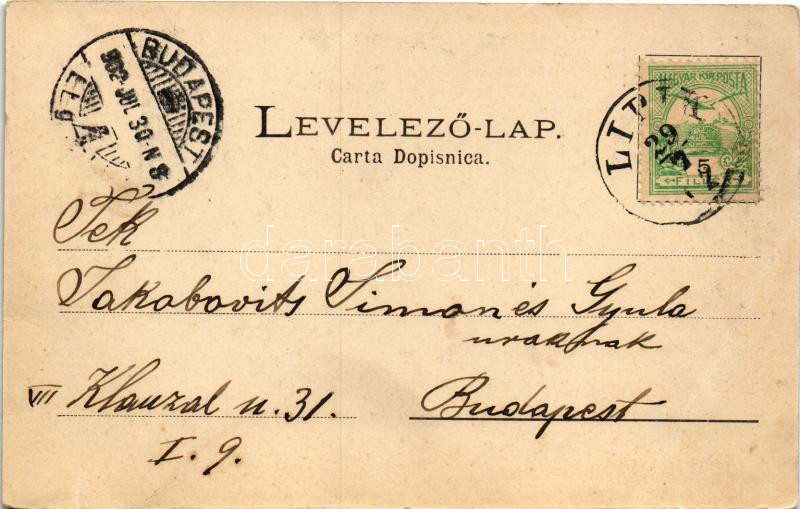 BUDAPEST
902 JUL. 30. N 8
MAGYAR KIR. POSTA
LIP
29
5
FILL
LEVELEZŐ-LAP.
Carta Dopisnica.
darabanth
Tek
Jakobovits Simon és Gyula
uraknak
VII Klauzal u. 31.
Budapest
I. 9.